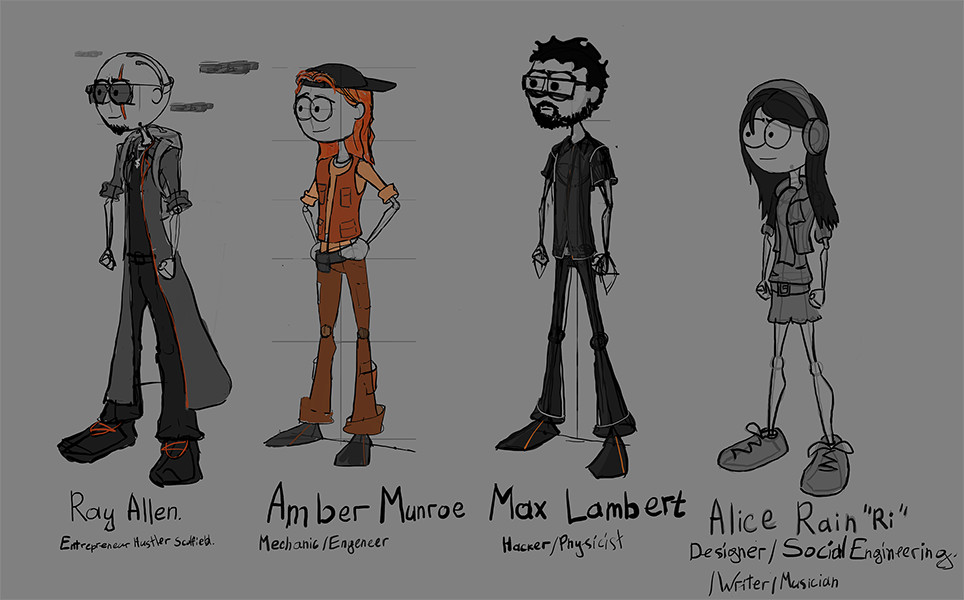 Ray Allen.
Entrepreneur Hustler
Amber Munroe
Mechanic/Engeneer
Max Lambert
Hacker/Physicist
Alice Rain "Ri"
Designer/Social Engineering.
/Writer/Musician